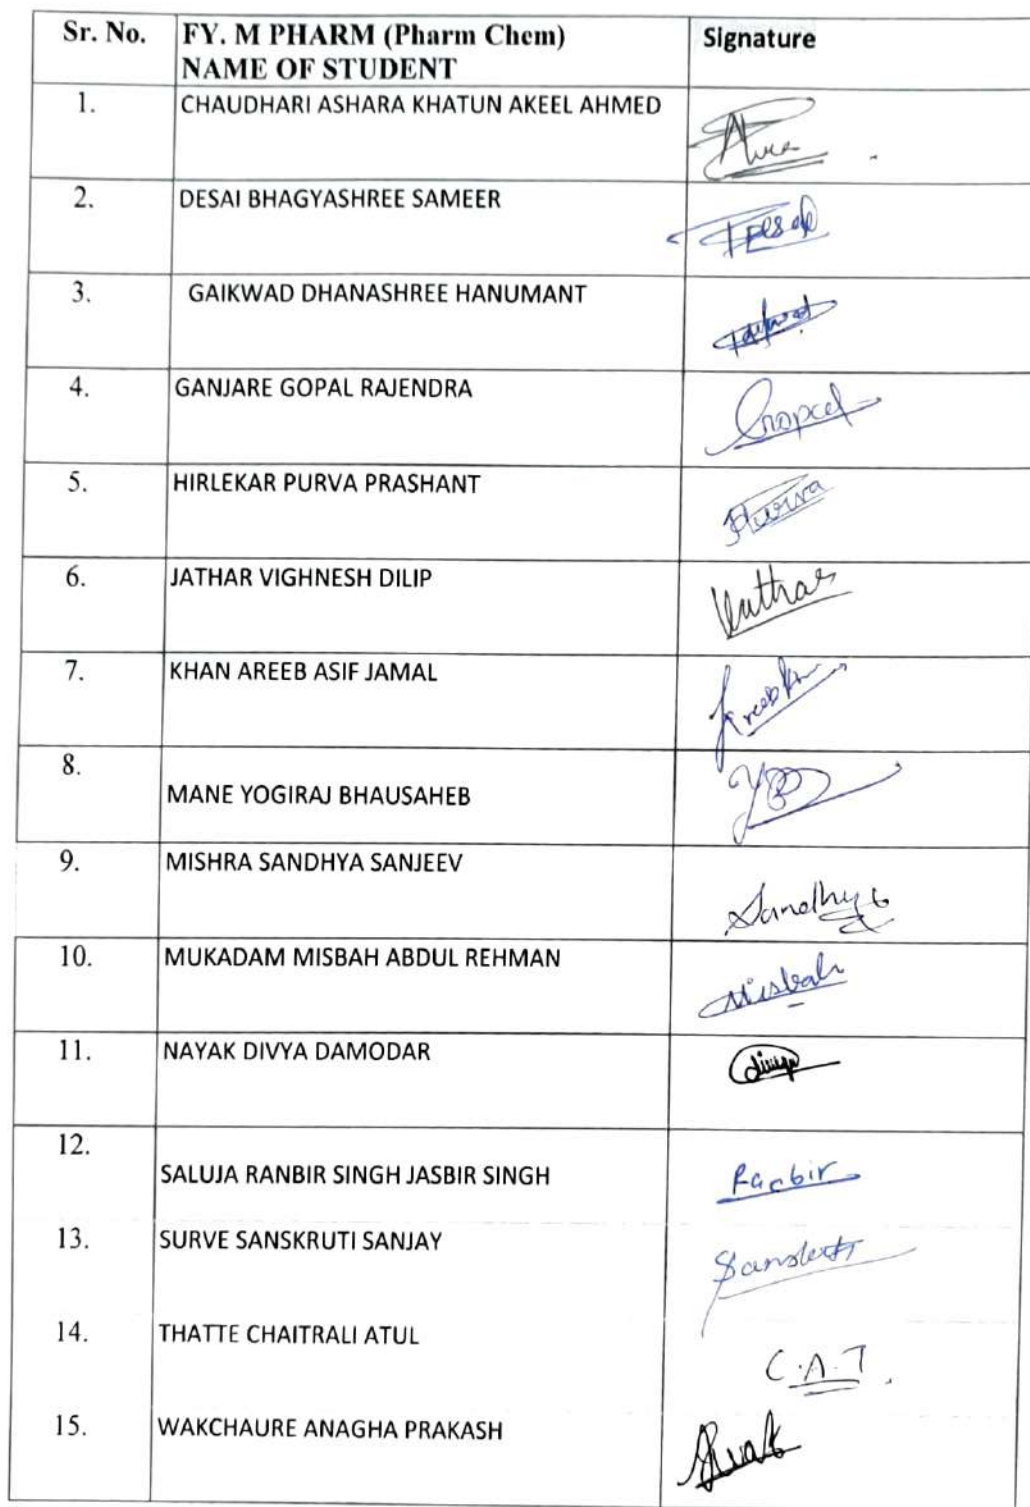 Sr. No. FY. M PHARM (Pharm Chem) Signature
NAME OF STUDENT
1. CHAUDHARI ASHARA KHATUN AKEEL AHMED
2. DESAI BHAGYASHREE SAMEER
3. GAIKWAD DHANASHREE HANUMANT
4. GANJARE GOPAL RAJENDRA Gopal
5. HIRLEKAR PURVA PRASHANT Purva
6. JATHAR VIGHNESH DILIP
7. KHAN AREEB ASIF JAMAL
8.
MANE YOGIRAJ BHAUSAHEB
9. MISHRA SANDHYA SANJEEV Sandhya
10. MUKADAM MISBAH ABDUL REHMAN Misbah
11. NAYAK DIVYA DAMODAR divya
12.
SALUJA RANBIR SINGH JASBIR SINGH Ranbir
13. SURVE SANSKRUTI SANJAY
14. THATTE CHAITRALI ATUL
C.A.T.
15. WAKCHAURE ANAGHA PRAKASH